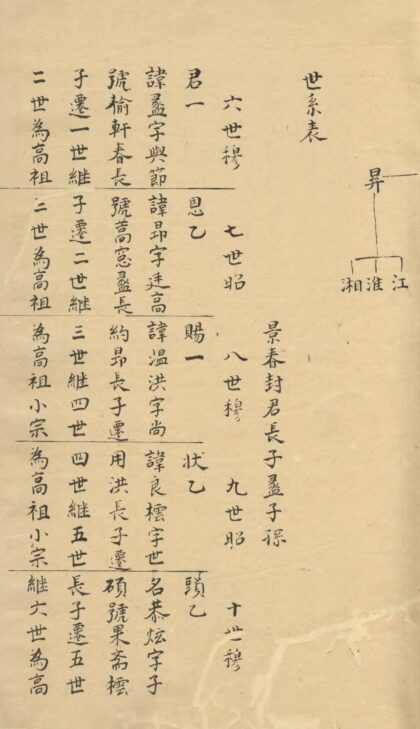 昇
江 淮 湘
世系表
景春封君長子盝子孫
六世穆
七世昭
八世穆
九世昭
十世穆
君一
諱盝字與節
號榆軒春長
子遷一世継
二世為高祖
恩乙
諱昂字廷高
號蒿窓盝長
子遷二世継
二世為高祖
賜一
諱温洪字尚
約昂長子遷
三世継四世
為高祖小宗
状乙
諱良橒字世
用洪長子遷
四世継五世
為高祖小宗
頭乙
名恭炫字子
碩號果斋橒
長子遷五世
継六世為高